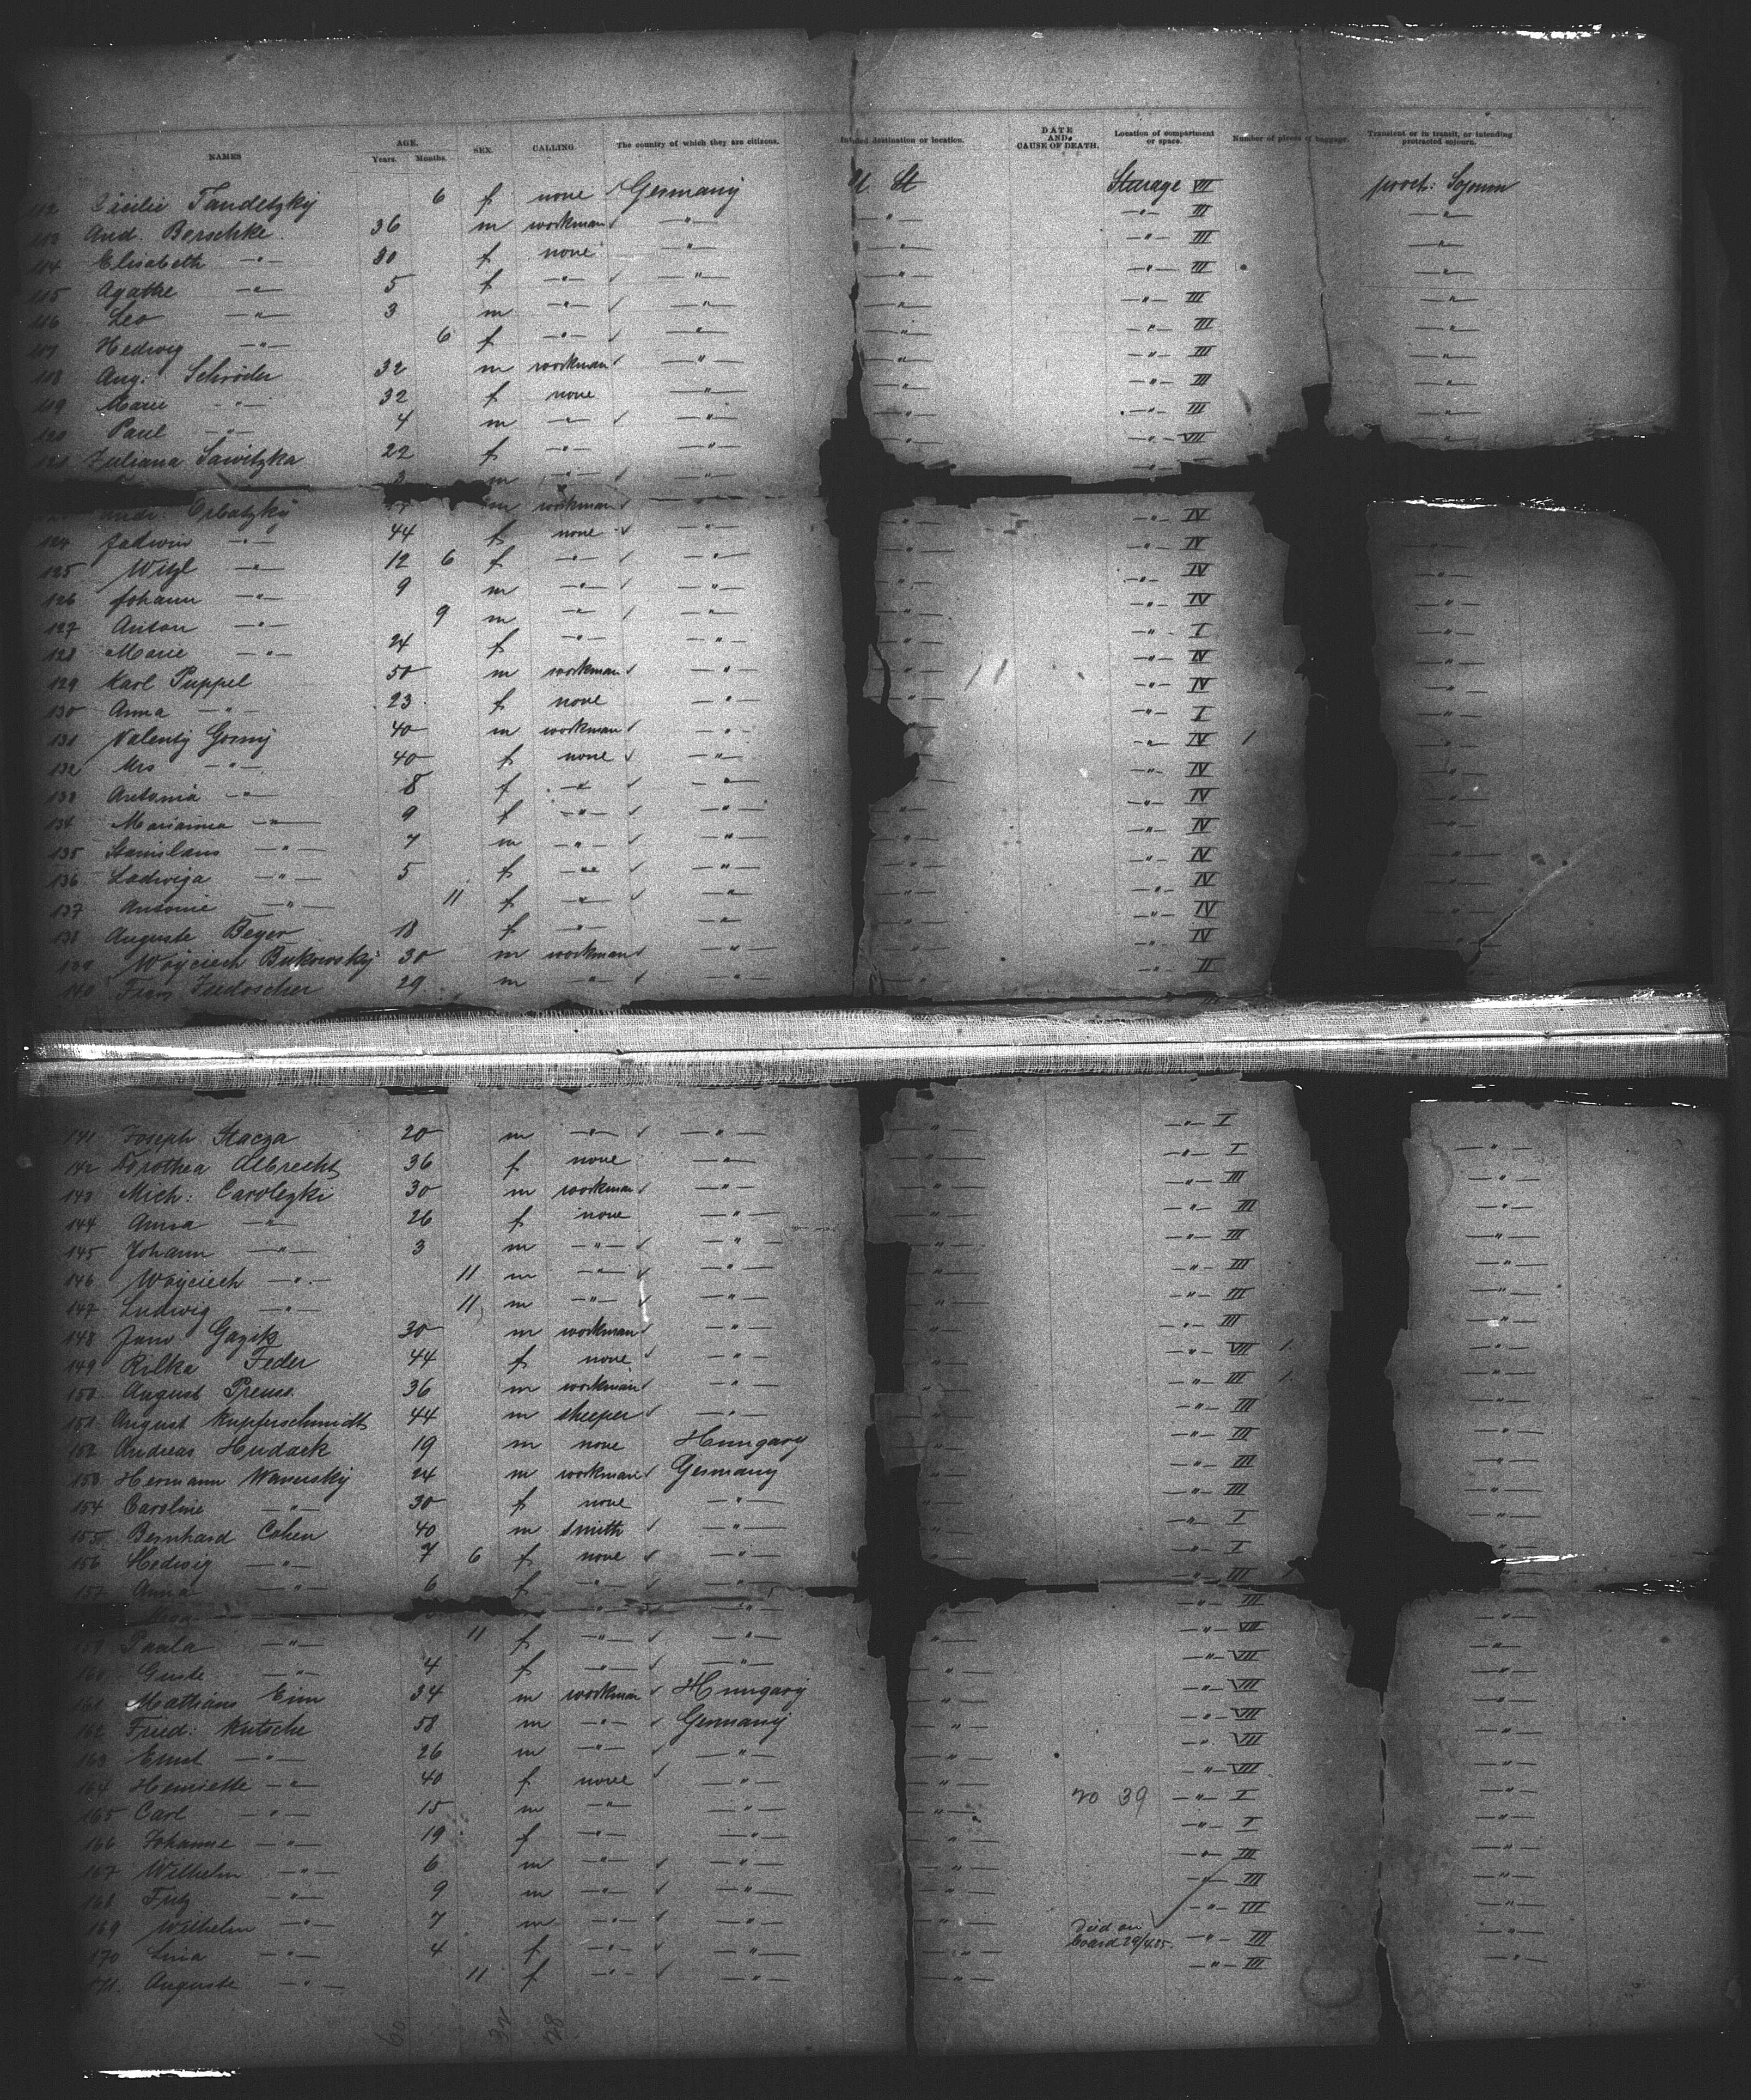 NAMES AGE. Years. Months. SEX. CALLING The country of which they are citizens. Intended destination or location. DATE AND CAUSE OF DEATH. Location of compartment or space. Number of pieces of baggage. Transient or in transit, or intending protracted sojourn.
112 Cäcilie Tandetzky 6 f none Germany U St Stearage VII prot: Sojourn
113 And. Berschke 36 m workman -"- -"- -"- III -"-
114 Elisabeth -"- 30 f none -"- -"- -"- III -"-
115 Agathe -"- 5 f -"- -"- -"- -"- III -"-
116 Leo -"- 3 m -"- -"- -"- -"- III -"-
117 Hedwig -"- 6 f -"- -"- -"- -"- III -"-
118 Aug: Schröder 32 m workman -"- -"- -"- III -"-
119 Marie -"- 32 f none -"- -"- -"- III -"-
120 Paul -"- 4 m -"- -"- -"- -"- III -"-
121 Juliana Sawitzka 22 f -"- -"- -"- -"- VII
m -"- -"-
Andr. Orbatzky m workman -"- -"- IV
124 Jadwin -"- 44 f none -"- -"- -"- IV -"-
125 -"- 12 6 f -"- -"- -"- IV -"-
126 Johann -"- 9 m -"- -"- -"- -"- IV -"-
127 Anton -"- 9 m -"- -"- -"- -"- I -"-
128 Marie -"- 24 f -"- -"- -"- -"- IV -"-
129 Karl Puppel 50 m workman -"- -"- -"- IV -"-
130 Anna -"- 23 f none -"- -"- -"- I -"-
131 Valenty Gorny 40 m workman -"- -"- IV 1 -"-
132 Mrs -"- 40 f none -"- -"- IV -"-
133 Antonia -"- 8 f -"- -"- -"- -"- IV -"-
134 Marianna -"- 9 f -"- -"- -"- -"- IV -"-
135 Stanislaus -"- 7 m -"- -"- -"- -"- IV -"-
136 Ladwiga -"- 5 f -"- -"- -"- -"- IV -"-
137 Antonie -"- 11 f -"- -"- -"- -"- IV -"-
138 Auguste Beyer 18 f -"- -"- -"- -"- IV -"-
139 Woyciech Bukowsky 30 m workman -"- -"- -"- II -"-
140 Franz Judoscher 29 m -"- -"-
141 Joseph Stacza 20 m -"- -"- -"- -"- I -"-
142 Dorothea Albrecht 36 f none -"- -"- -"- I -"-
143 Mich: Carolezki 30 m workman -"- -"- -"- III -"-
144 Anna -"- 26 f none -"- -"- -"- III -"-
145 Johann -"- 3 m -"- -"- -"- -"- III -"-
146 Woyciech -"- 11 m -"- -"- -"- -"- III -"-
147 Ludwig -"- 11 m -"- -"- -"- -"- III -"-
148 Jano Gazik 30 m workman -"- -"- -"- III -"-
149 Rilka Feder 44 f none -"- -"- -"- VII 1 -"-
150 August Preuss 36 m workman -"- -"- -"- III 1 -"-
151 August Kupferschmidt 44 m sheeper -"- -"- -"- III -"-
152 Andreas Hudack 19 m none Hungary -"- -"- III -"-
153 Hermann Wanersky 24 m workman Germany -"- -"- III -"-
154 Caroline -"- 30 f none -"- -"- -"- III -"-
155 Bernhard Cohen 40 m smith -"- -"- -"- I -"-
156 Hedwig -"- 7 6 f none -"- -"- -"- I
157 Anna -"- 6 f -"- -"- -"- III
-"- -"- -"- III -"-
159 Paula -"- 11 f -"- -"- -"- -"- VII -"-
160 Guste -"- 4 f -"- -"- -"- -"- VII -"-
161 Mathias Eim 34 m workman Hungary -"- -"- VII -"-
162 Fried: Kutsche 58 m -"- Germany -"- -"- VII -"-
163 Ernst -"- 26 m -"- -"- -"- -"- VII -"-
164 Henriette -"- 40 f none -"- -"- -"- VII -"-
165 Carl -"- 15 m -"- -"- -"- 20 39 -"- I -"-
166 Johanne -"- 19 f -"- -"- -"- -"- I -"-
167 Wilhelm -"- 6 m -"- -"- -"- -"- III -"-
168 Fritz -"- 9 m -"- -"- -"- -"- III -"-
169 Wilhelm -"- 7 m -"- -"- -"- -"- III -"-
170 Lina -"- 4 f -"- -"- -"- Died on board 29/4 85. -"- III -"-
171. Auguste -"- 11 f -"- -"- -"- -"- III
60 32 28